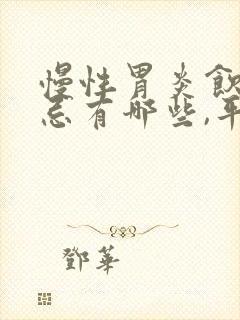 慢性胃炎飲
忌有哪些,平
鄧華